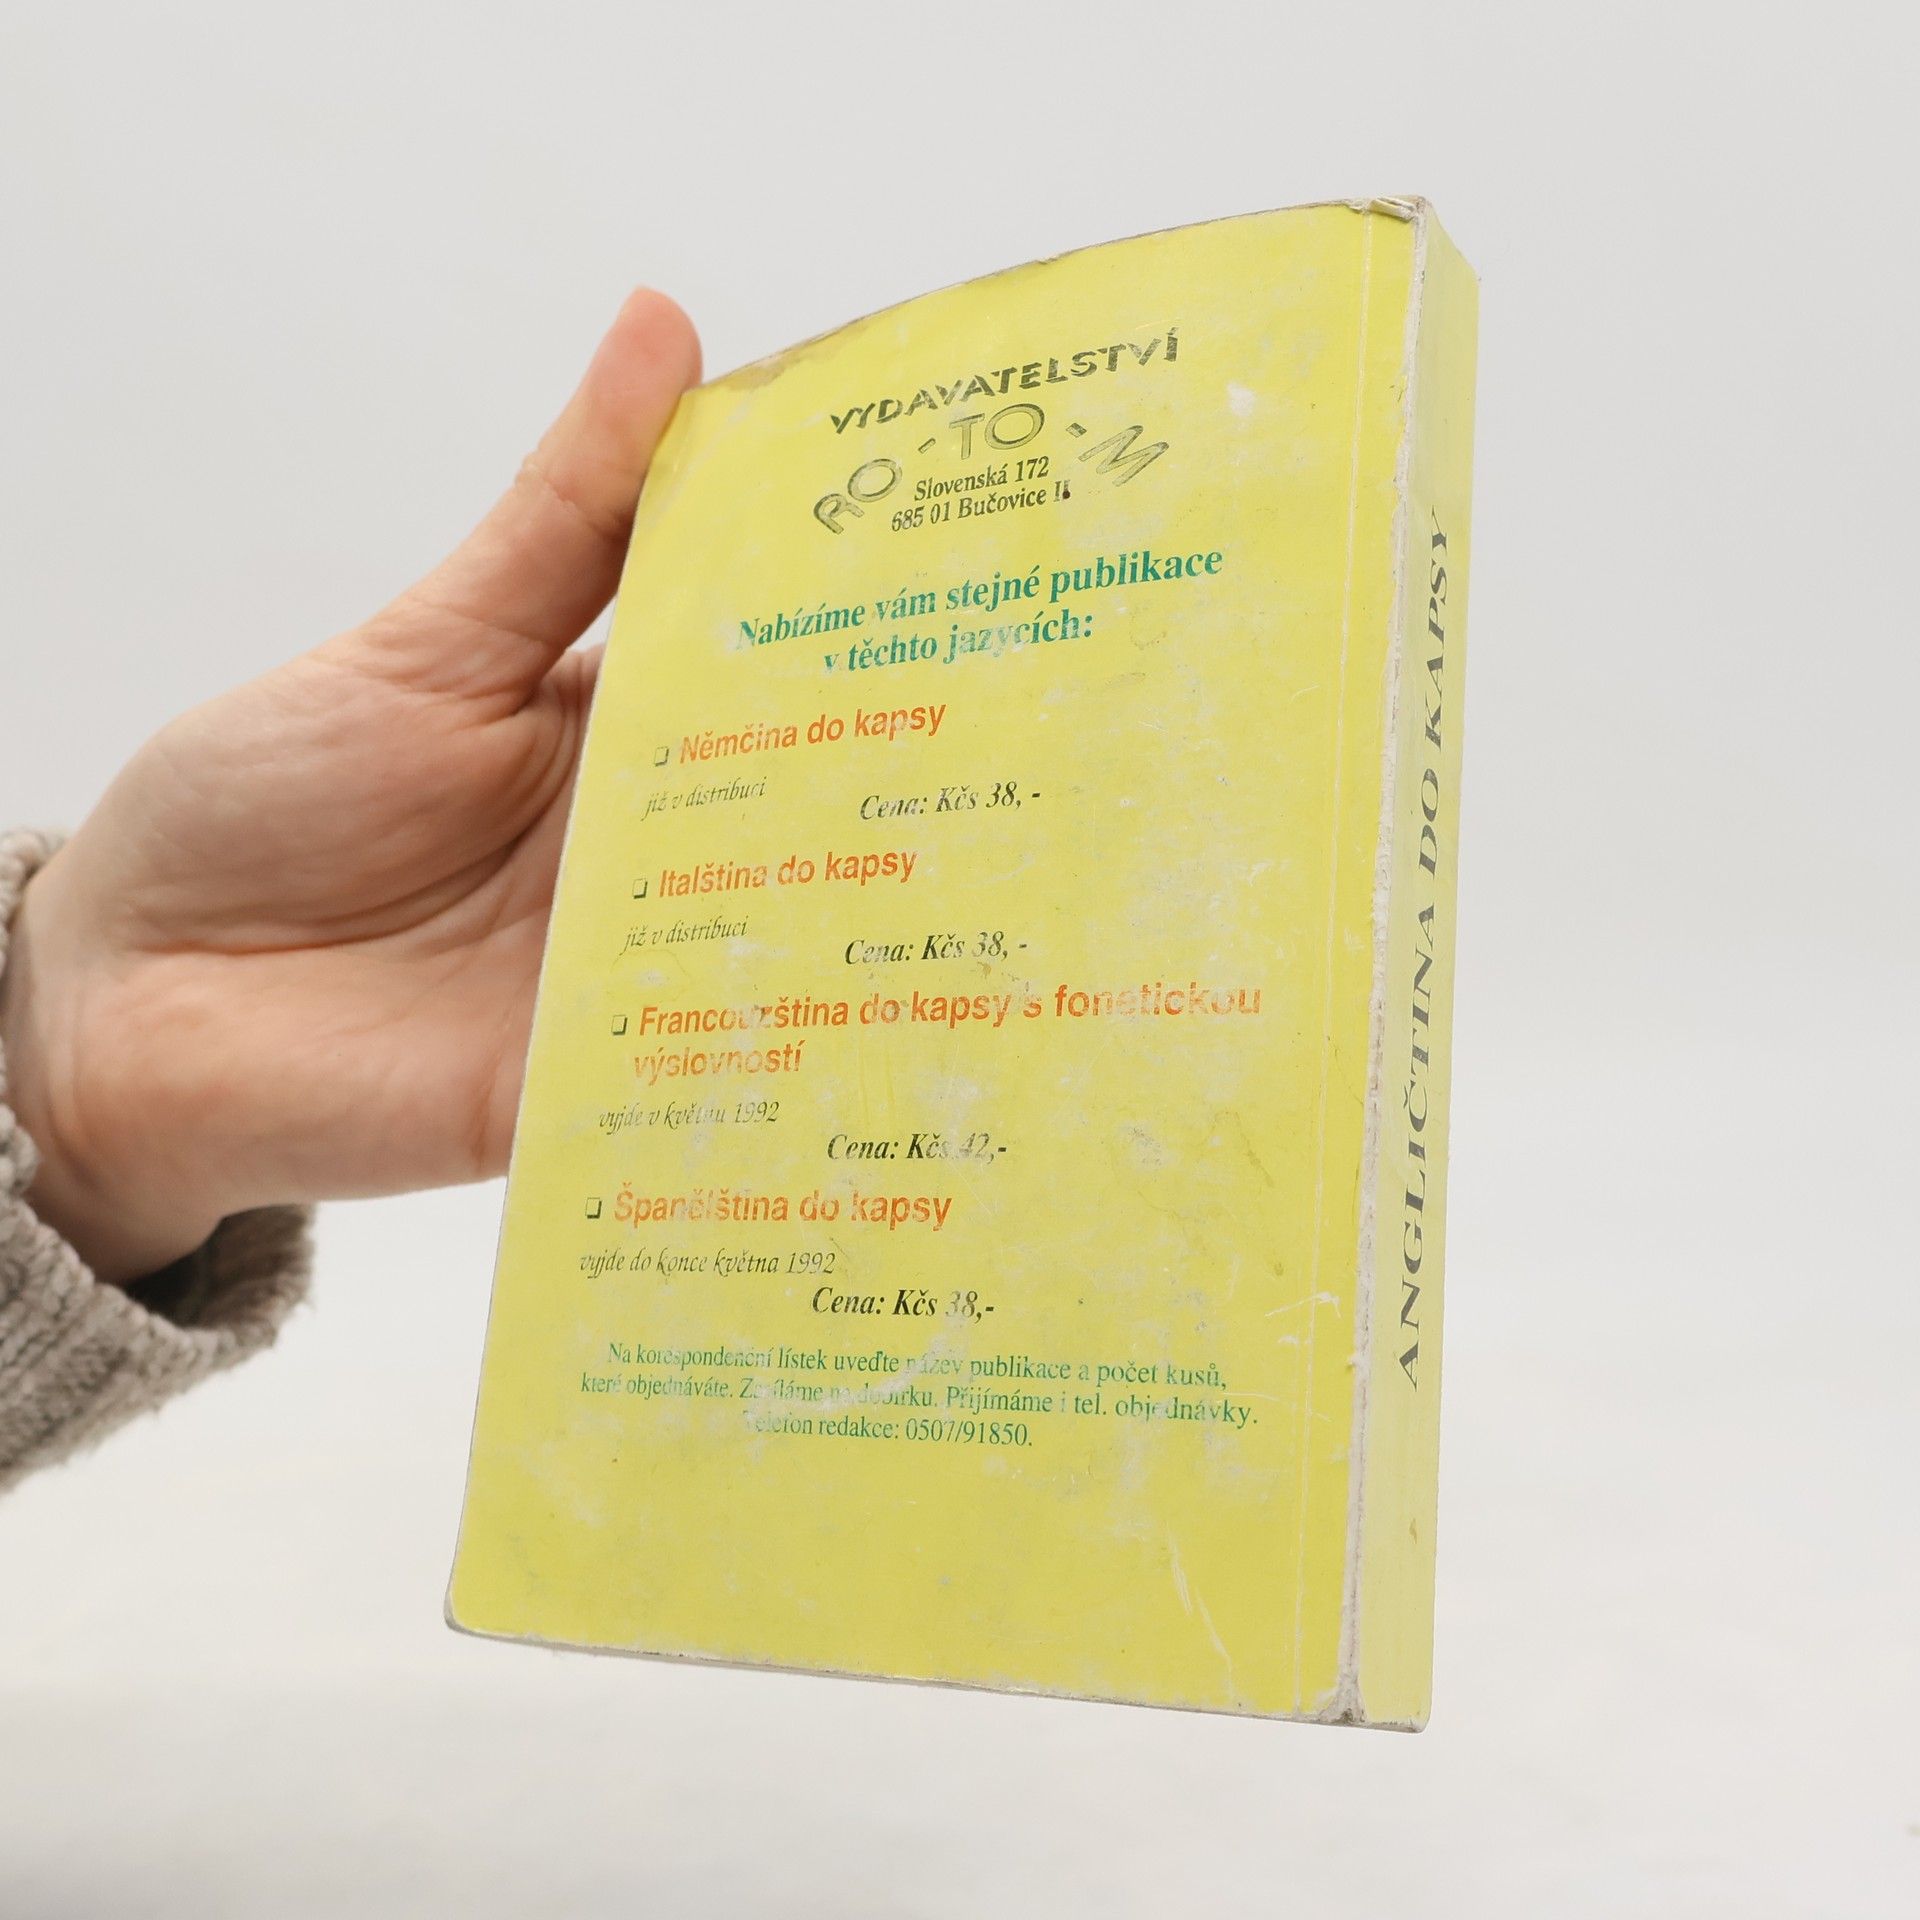 VYDAVATELSTVÍ
RO - TO - M
Slovenská 172
685 01 Bučovice II
Nabízíme vám stejné publikace
v těchto jazycích:
❏ Němčina do kapsy
již v distribuci
Cena: Kčs 38, -
❏ Italština do kapsy
již v distribuci
Cena: Kčs 38, -
❏ Francouzština do kapsy s fonetickou
výslovností
vyjde v květnu 1992
Cena: Kčs 42,-
❏ Španělština do kapsy
vyjde do konce května 1992
Cena: Kčs 38,-
Na korespondenční lístek uveďte název publikace a počet kusů,
které objednáváte. Zasíláme na dobírku. Přijímáme i tel. objednávky.
Telefon redakce: 0507/91850.
ANGLIČTINA DO KAPSY